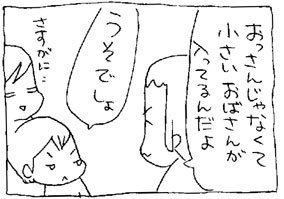 おっさんじゃなくて
小さいおばさんが
入ってるんだよ
うそでしょ
さすがに…